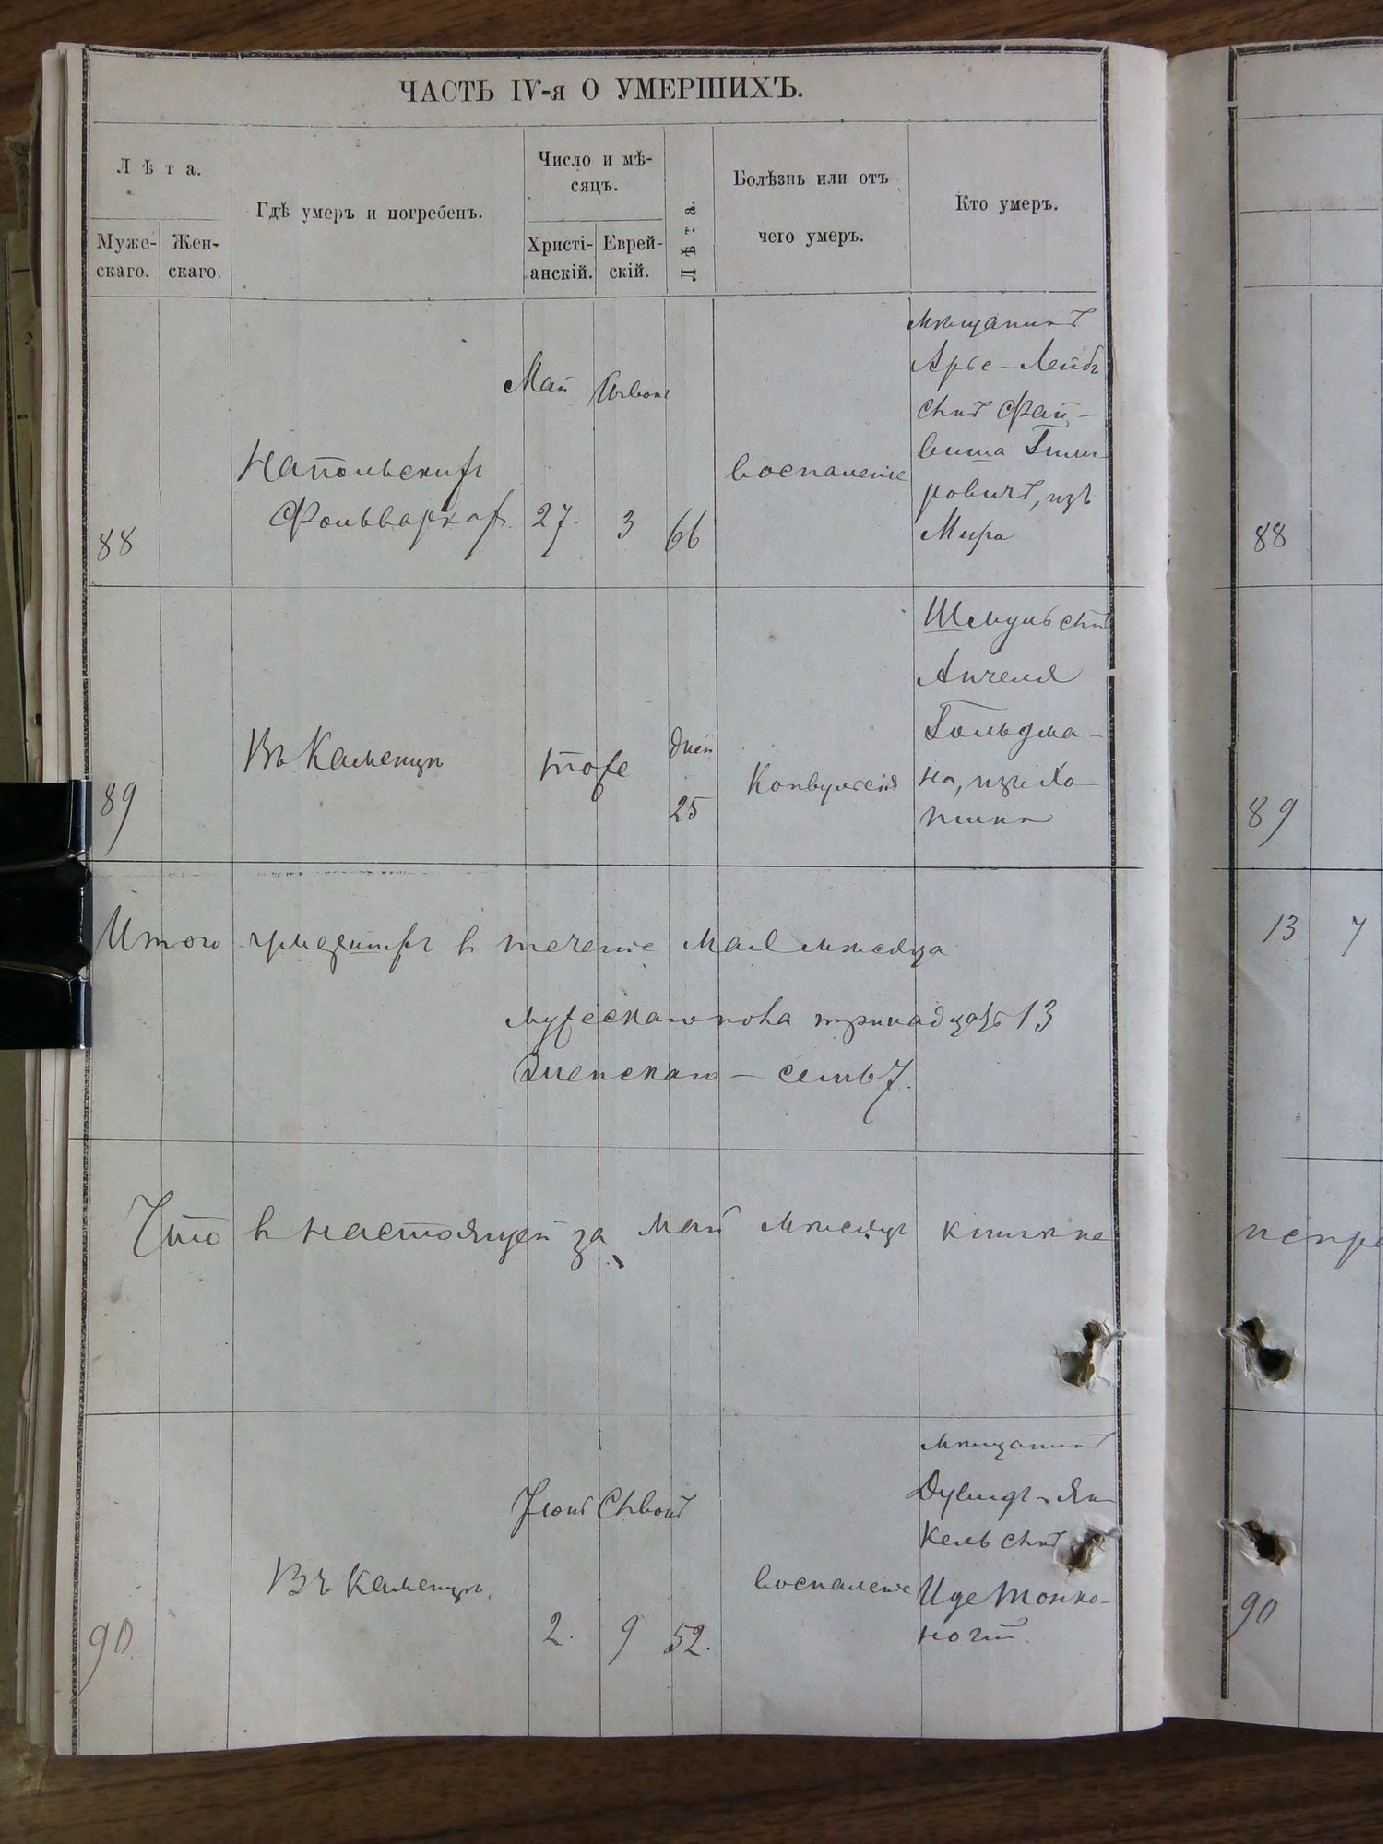 ЧАСТЬ IV-я О УМЕРШИХЪ.
Лѣта.
Муже-
скаго.
Жен-
скаго.
Гдѣ умеръ и погребенъ.
Число и мѣ-
сяцъ.
Христі-
анскій.
Еврей-
скій.
Лѣта.
Болѣзнь или отъ
чего умеръ.
Кто умеръ.
88
Напольскихъ
Фольваркахъ
Май
27.
Сивонъ
3
66
воспаленіе
мѣщанинъ
Арье-Лейбъ
сынъ Фай-
виша
ровичъ, изъ
Мира
88
89
Въ Каменцѣ
тоже
дней
25
Конвульсія
Шмуль сынъ
Анчеля
Гольдма-
на, изъ Хо-
тина
89
Итого умершихъ въ теченіе мая мѣсяца
мужескаго пола тринадцать 13
Женскаго — семь 7.
13 7
Что въ настоящей за май мѣсяцъ книгѣ не
90
Въ Каменцѣ.
Іюнь
2.
Сивонъ
9
52.
воспаленіе
мѣщанинъ
Дувидъ-Ян-
кель сынъ
Иде Тонко-
ногій.
90